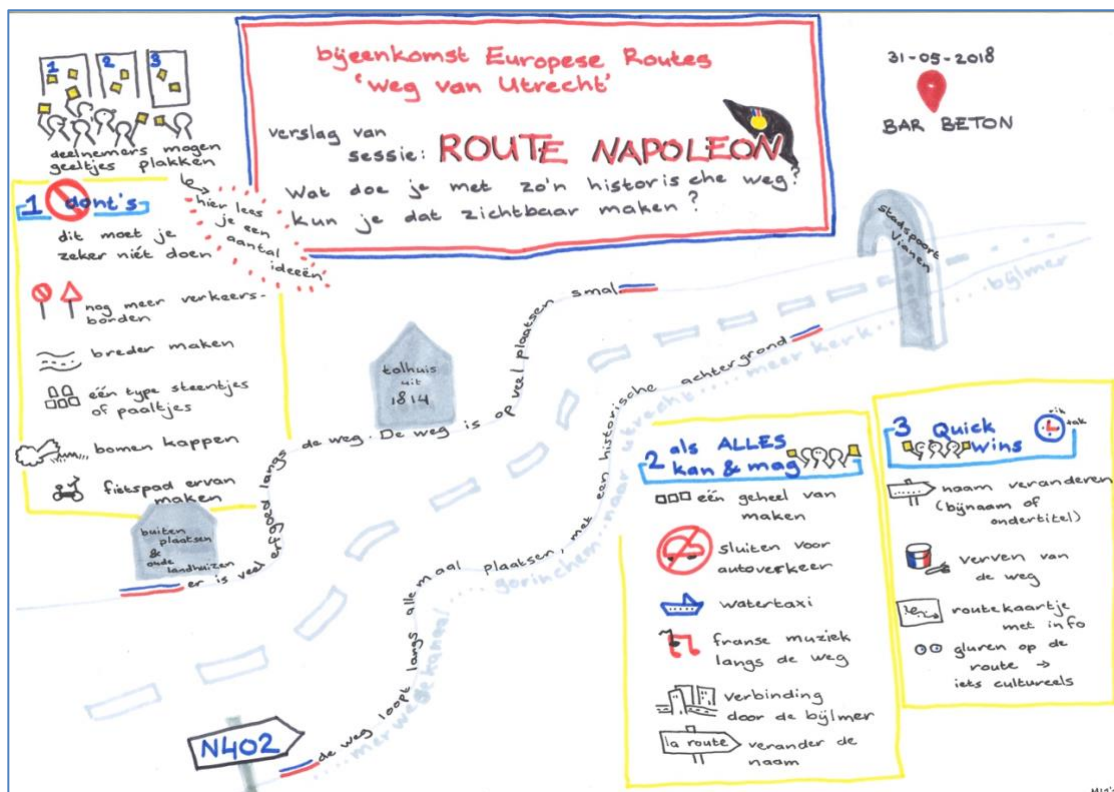 1
2
3
deelnemers mogen
geeltjes plakken
hier lees
je een
aantal
ideeën
bijeenkomst Europese Routes
'weg van Utrecht'
verslag van
sessie: ROUTE NAPOLEON
Wat doe je met zo'n historische weg?
Kun je dat zichtbaar maken?
31-05-2018
BAR BETON
1 dont's
dit moet je
zeker niét doen
nog meer verkeers-
borden
breder maken
één type steentjes
of paaltjes
bomen kappen
fietspad ervan
maken
buiten
plaatsen
&
oude
landhuizen
tolhuis
uit
1814
stadspoort
Vianen
er is veel erfgoed langs de weg. De weg is op veel plaatsen smal
de weg loopt langs allemaal plaatsen, met een historische achtergrond
....merwedekanaal....gorinchem...naar utrecht....meerkerk.......bijlmer
N402
2 als ALLES
kan & mag
één geheel van
maken
sluiten voor
autoverkeer
watertaxi
franse muziek
langs de weg
verbinding
door de bijlmer
la route
verander de
naam
3 Quick
wins
tik
tak
naam veranderen
(bijnaam of
ondertitel)
verven van
de weg
routekaartje
met info
gluren op de
route →
iets cultureels